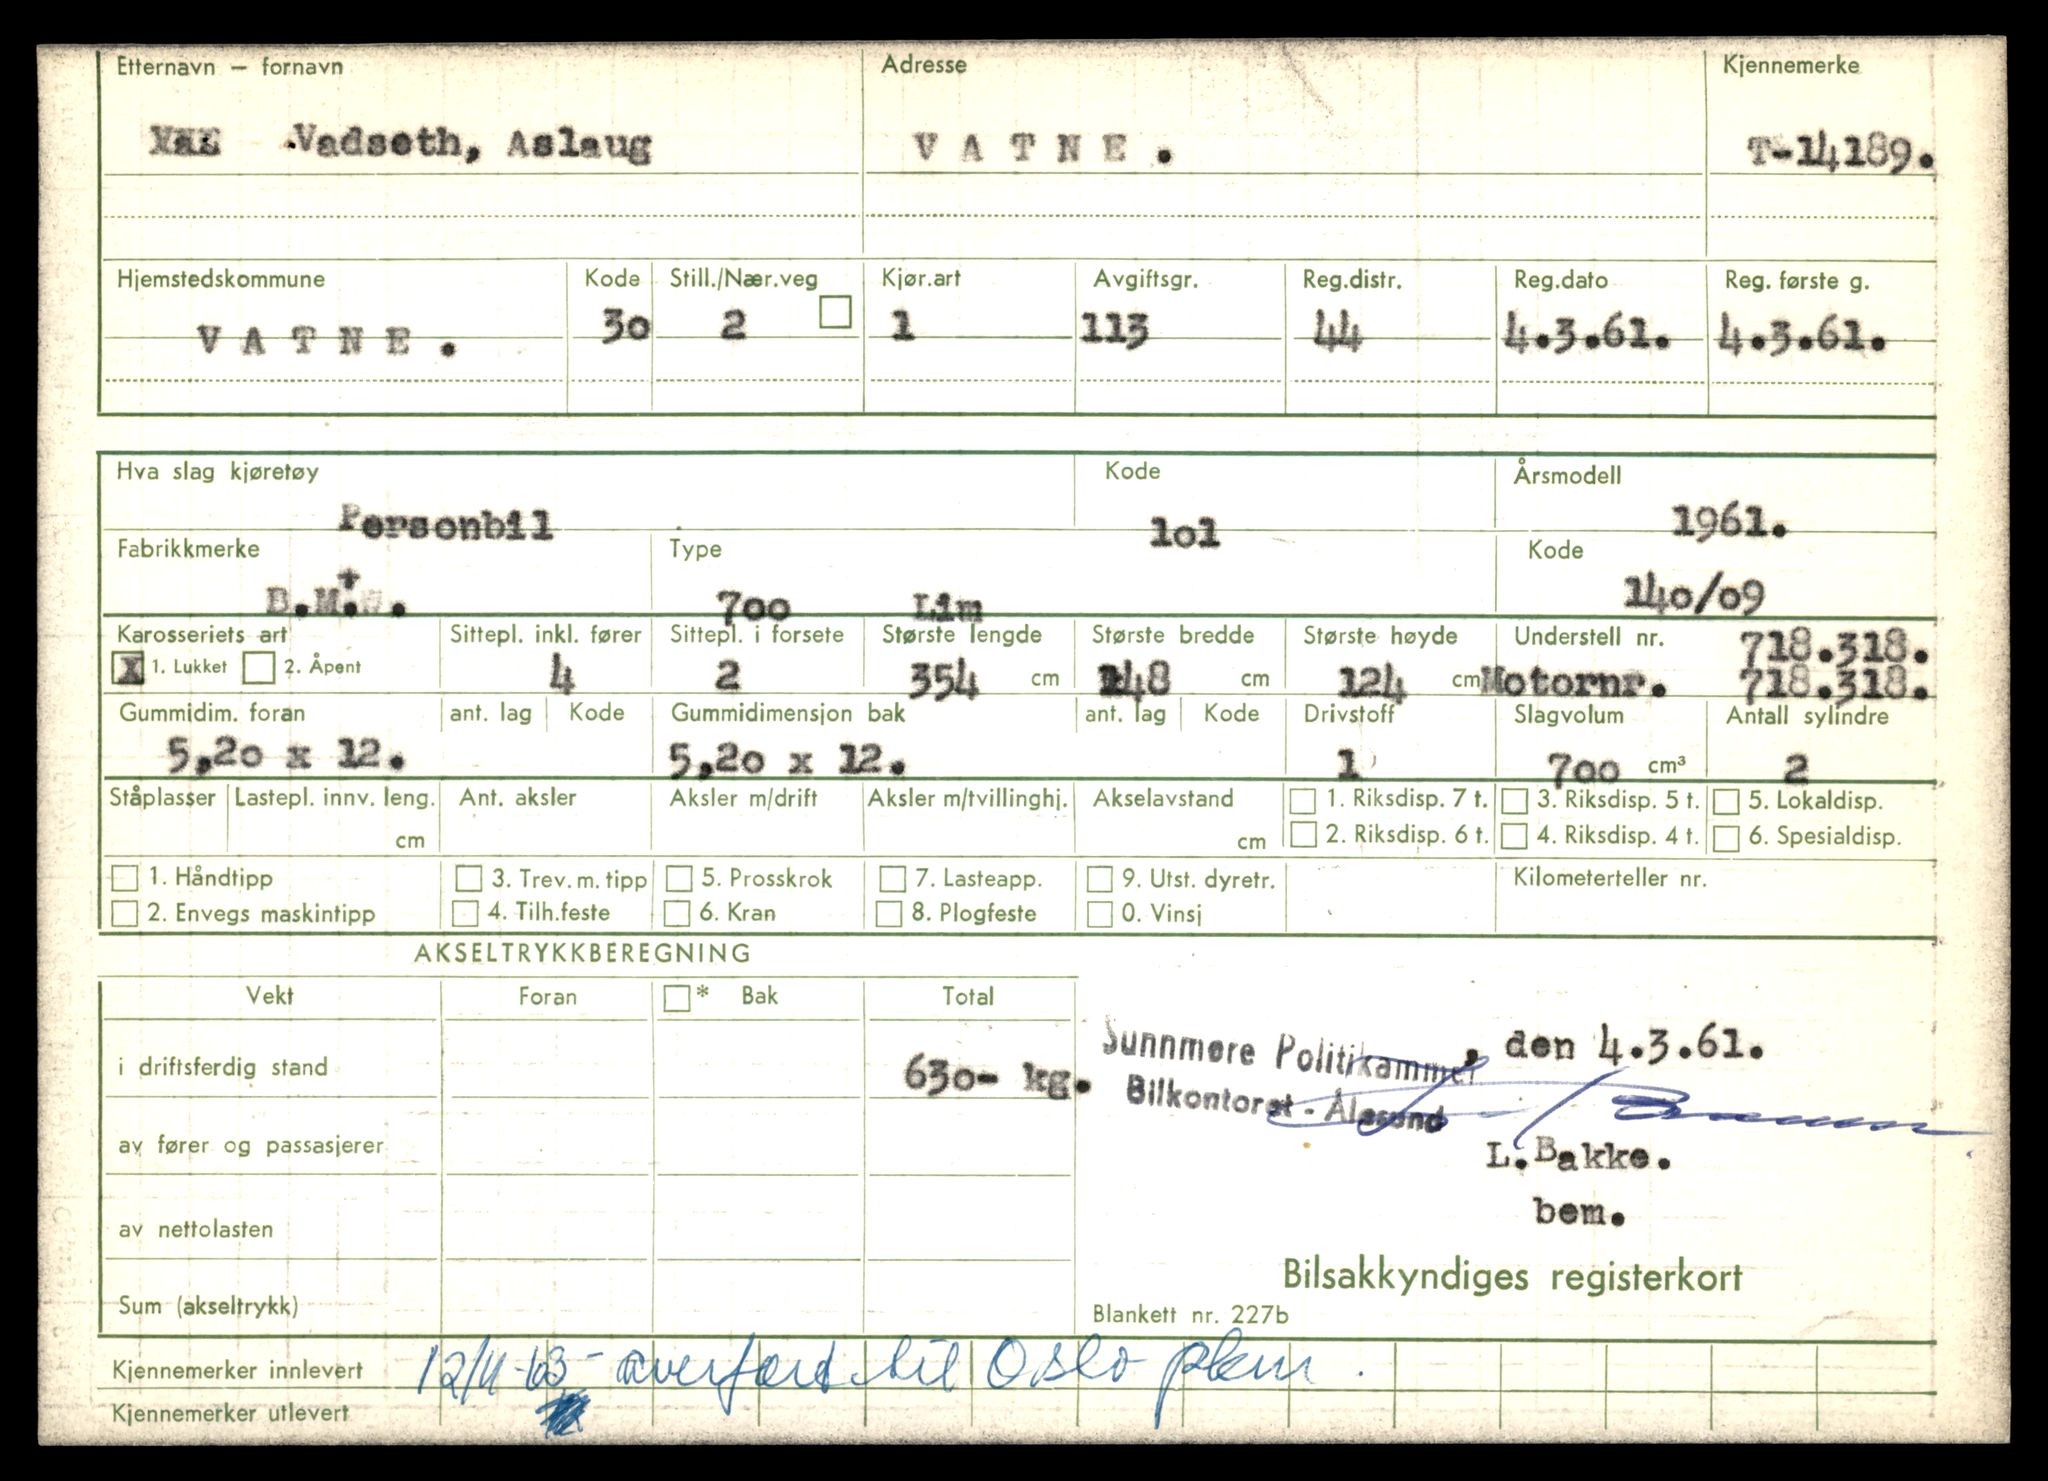 Etternavn – fornavn Adresse Kjennemerke
Vadseth, Aslaug V A T N E . T-14189.
Hjemstedskommune Kode Still./Nær.veg Kjør.art Avgiftsgr. Reg.distr. Reg.dato Reg. første g.
V A T N E . 30 2 1 113 44 4.3.61. 4.3.61.
Hva slag kjøretøy Kode Årsmodell
Personbil 1o1 1961.
Fabrikkmerke Type Kode
B.M.W. 7oo Lim 14o/o9
Karosseriets art Sittepl. inkl. fører Sittepl. i forsete Største lengde Største bredde Største høyde Understell nr. 718.318.
X 1. Lukket 2. Åpent 4 2 354 cm 148 cm 124 cm Motornr. 718.318.
Gummidim. foran ant. lag Kode Gummidimensjon bak ant. lag Kode Drivstoff Slagvolum Antall sylindre
5,2o x 12. 5,2o x 12. 1 7oo cm³ 2
Ståplasser Lastepl. innv. leng. Ant. aksler Aksler m/drift Aksler m/tvillinghj. Akselavstand 1. Riksdisp. 7 t. 3. Riksdisp. 5 t. 5. Lokaldisp.
cm cm 2. Riksdisp. 6 t. 4. Riksdisp. 4 t. 6. Spesialdisp.
1. Håndtipp 3. Trev. m. tipp 5. Prosskrok 7. Lasteapp. 9. Utst. dyretr. Kilometerteller nr.
2. Envegs maskintipp 4. Tilh.feste 6. Kran 8. Plogfeste 0. Vinsj
AKSELTRYKKBEREGNING
Vekt Foran * Bak Total
i driftsferdig stand 63o- kg.
Sunnmøre Politikammer, den 4.3.61.
Bilkontoret - Ålesund
av fører og passasjerer
L.Bakke.
bem.
av nettolasten
Bilsakkyndiges registerkort
Sum (akseltrykk)
Blankett nr. 227b
Kjennemerker innlevert 12/11-63 - overført til Oslo
Kjennemerker utlevert